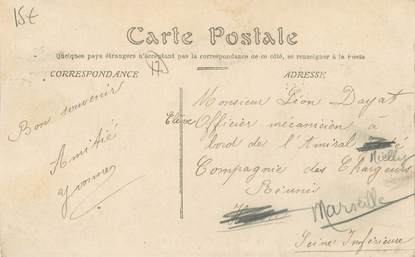 15€
Carte Postale
Quelques pays étrangers n'acceptant pas la correspondance de ce côté, se renseigner à la Poste
CORRESPONDANCE
ADRESSE
Bon souvenir
Amitié
Yvonne
Monsieur Léon Dayat
Elève Officier mécanicien à
bord de l'Amiral
Nielly
Compagnie des Chargeurs
Réunis
Marseille
Seine Inférieure